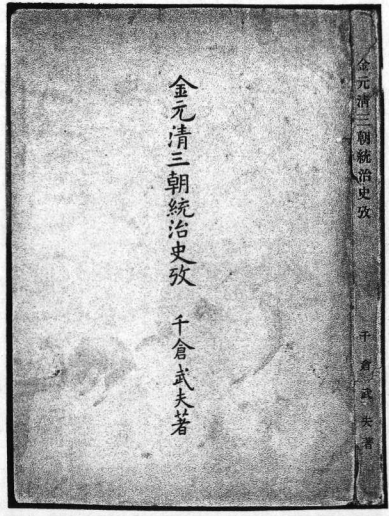 金元清三朝統治史攷
千倉武夫著
金元清三朝統治史攷
千倉武夫著